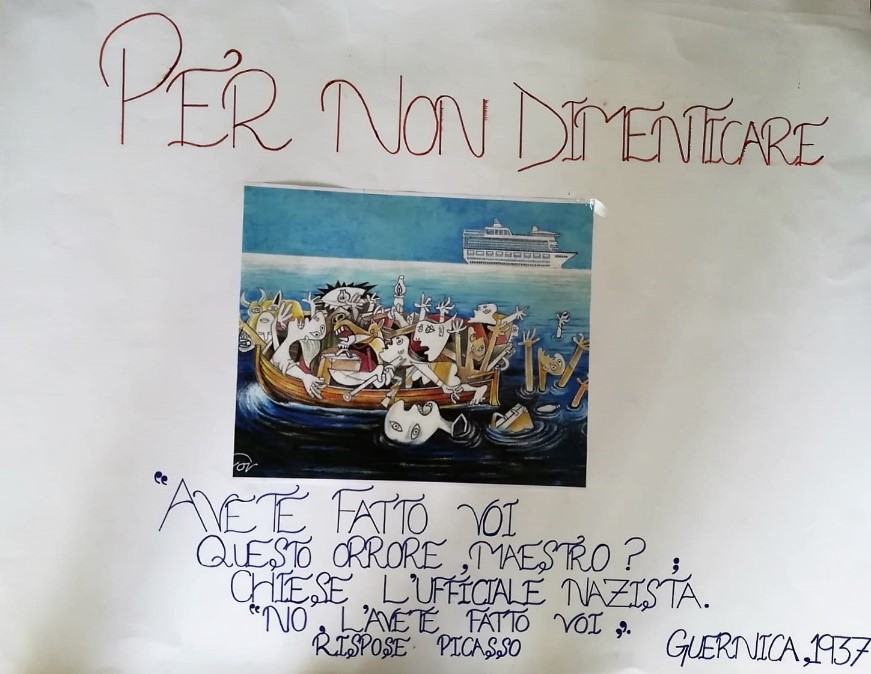 PER NON DIMENTICARE
"AVETE FATTO VOI
QUESTO ORRORE, MAESTRO? ;
CHIESE L'UFFICIALE NAZISTA.
"NO, L'AVETE FATTO VOI ,.
RISPOSE PICASSO
GUERNICA, 1937